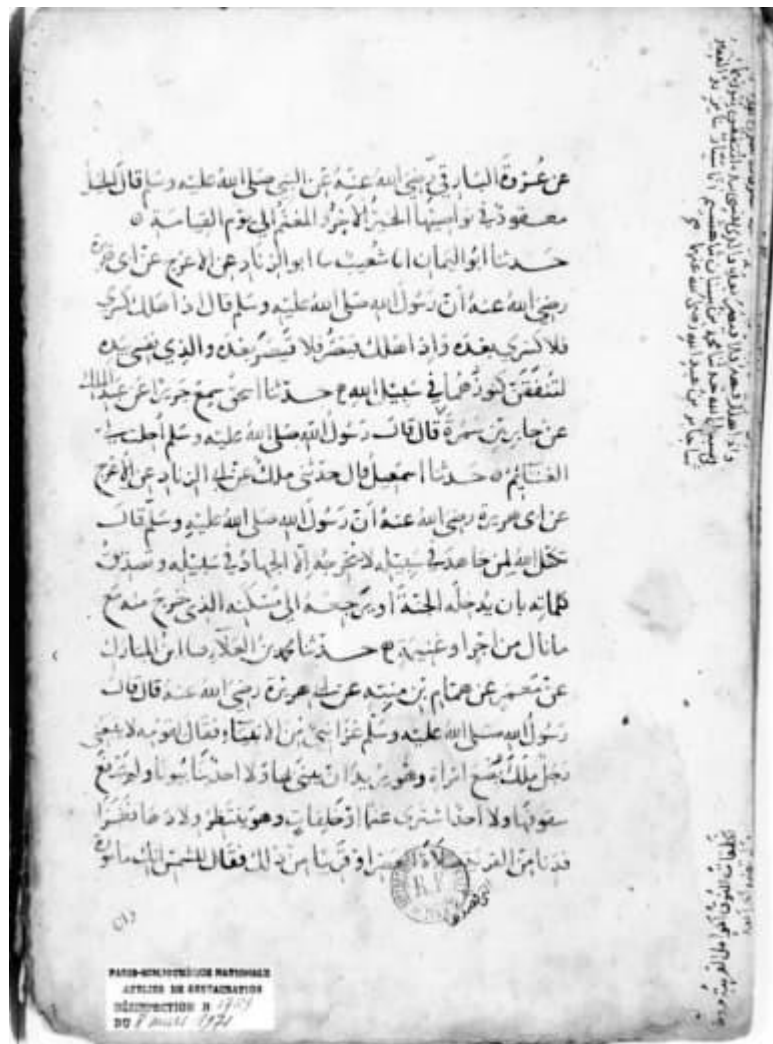 عن عُرْوَةَ البارِقيِّ رَضِيَ اللهُ عنهُ عَنِ النبي صلى اللهُ عليه وسلم قال الخيل
معقود في نواصيها الخيرُ الأجرُ والمغنمُ إلى يَوْم القيامة
حدثنا ابو اليمان انا شعيب ابو الزناد عن الاعرج عن ابي هريرة
رضي الله عنه أن رَسُولَ الله صلى الله عليه وسلم قال اذا هلك كسرى
فلا كسرى بعده واذا هلك قيصر فلا قيصر بعده والذي نفسي بيده
لتنفقن كنوزهما في سبيل الله ح حدثنا اسحق سمع جريرا عن عبد الملك
عن جابر بن سمرة قال قال رَسُولُ الله صلى الله عليه وسلم أحلت لي
الغنائم حدثنا اسمعيل قال حدثني ملك عن ابي الزناد عن الاعرج
عن ابي هريرة رضي الله عنهُ أن رَسُولَ الله صلى الله عليه وسلم قال
تكفل الله لمن جاهد في سبيله لا يخرجه إلا الجهاد في سبيله وتصديق
كلماته بان يدخله الجنة او يرجعه الى مسكنه الذي خرج منه مع
ما نال من اجر او غنيمة ح حدثنا محمد بن العلاء ابن المبارك
عن معمر عن همام بن منبه عن ابي هريرة رضي الله عنه قال قال
رَسُولُ الله صلى الله عليه وسلم غزا نبي من الانبياء فقال لقومه لا يتبعني
رجل ملك بضع امراة وهو يريد ان يبني بها ولا احد بنا بيوتا ولم يرفع
سقوفها ولا احد اشترى غنما او خلفات وهو ينتظر ولادها فغزا
فدنا من القرية صلاة العصر او قريبا من ذلك فقال للشمس انك مامورة
R.F.
PARIS-BIBLIOTHÈQUE NATIONALE
ATELIER DE RESTAURATION
DÉSINFECTION N
DU 8 mars 1971